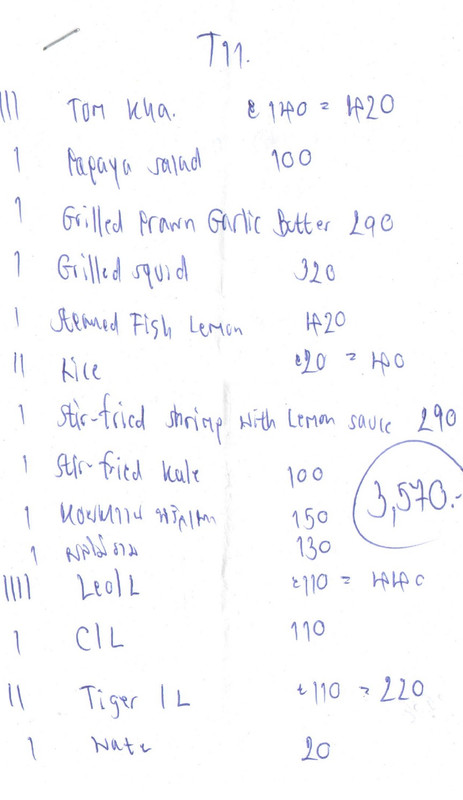 T11.
III Tom Kha. @ 140 = 420
1 Papaya salad 100
1 Grilled Prawn Garlic Butter 290
1 Grilled squid 320
1 Steamed Fish Lemon 420
II Rice @20 = 40
1 Stir-fried shrimp with Lemon sauce 290
1 Stir-fried kale 100
3,570.-
1 หอยหวาน 150
1 ผลไม้รวม 130
IIII Leo/L @110 = 440
1 C/L 110
II Tiger / L @110 = 220
1 Water 20